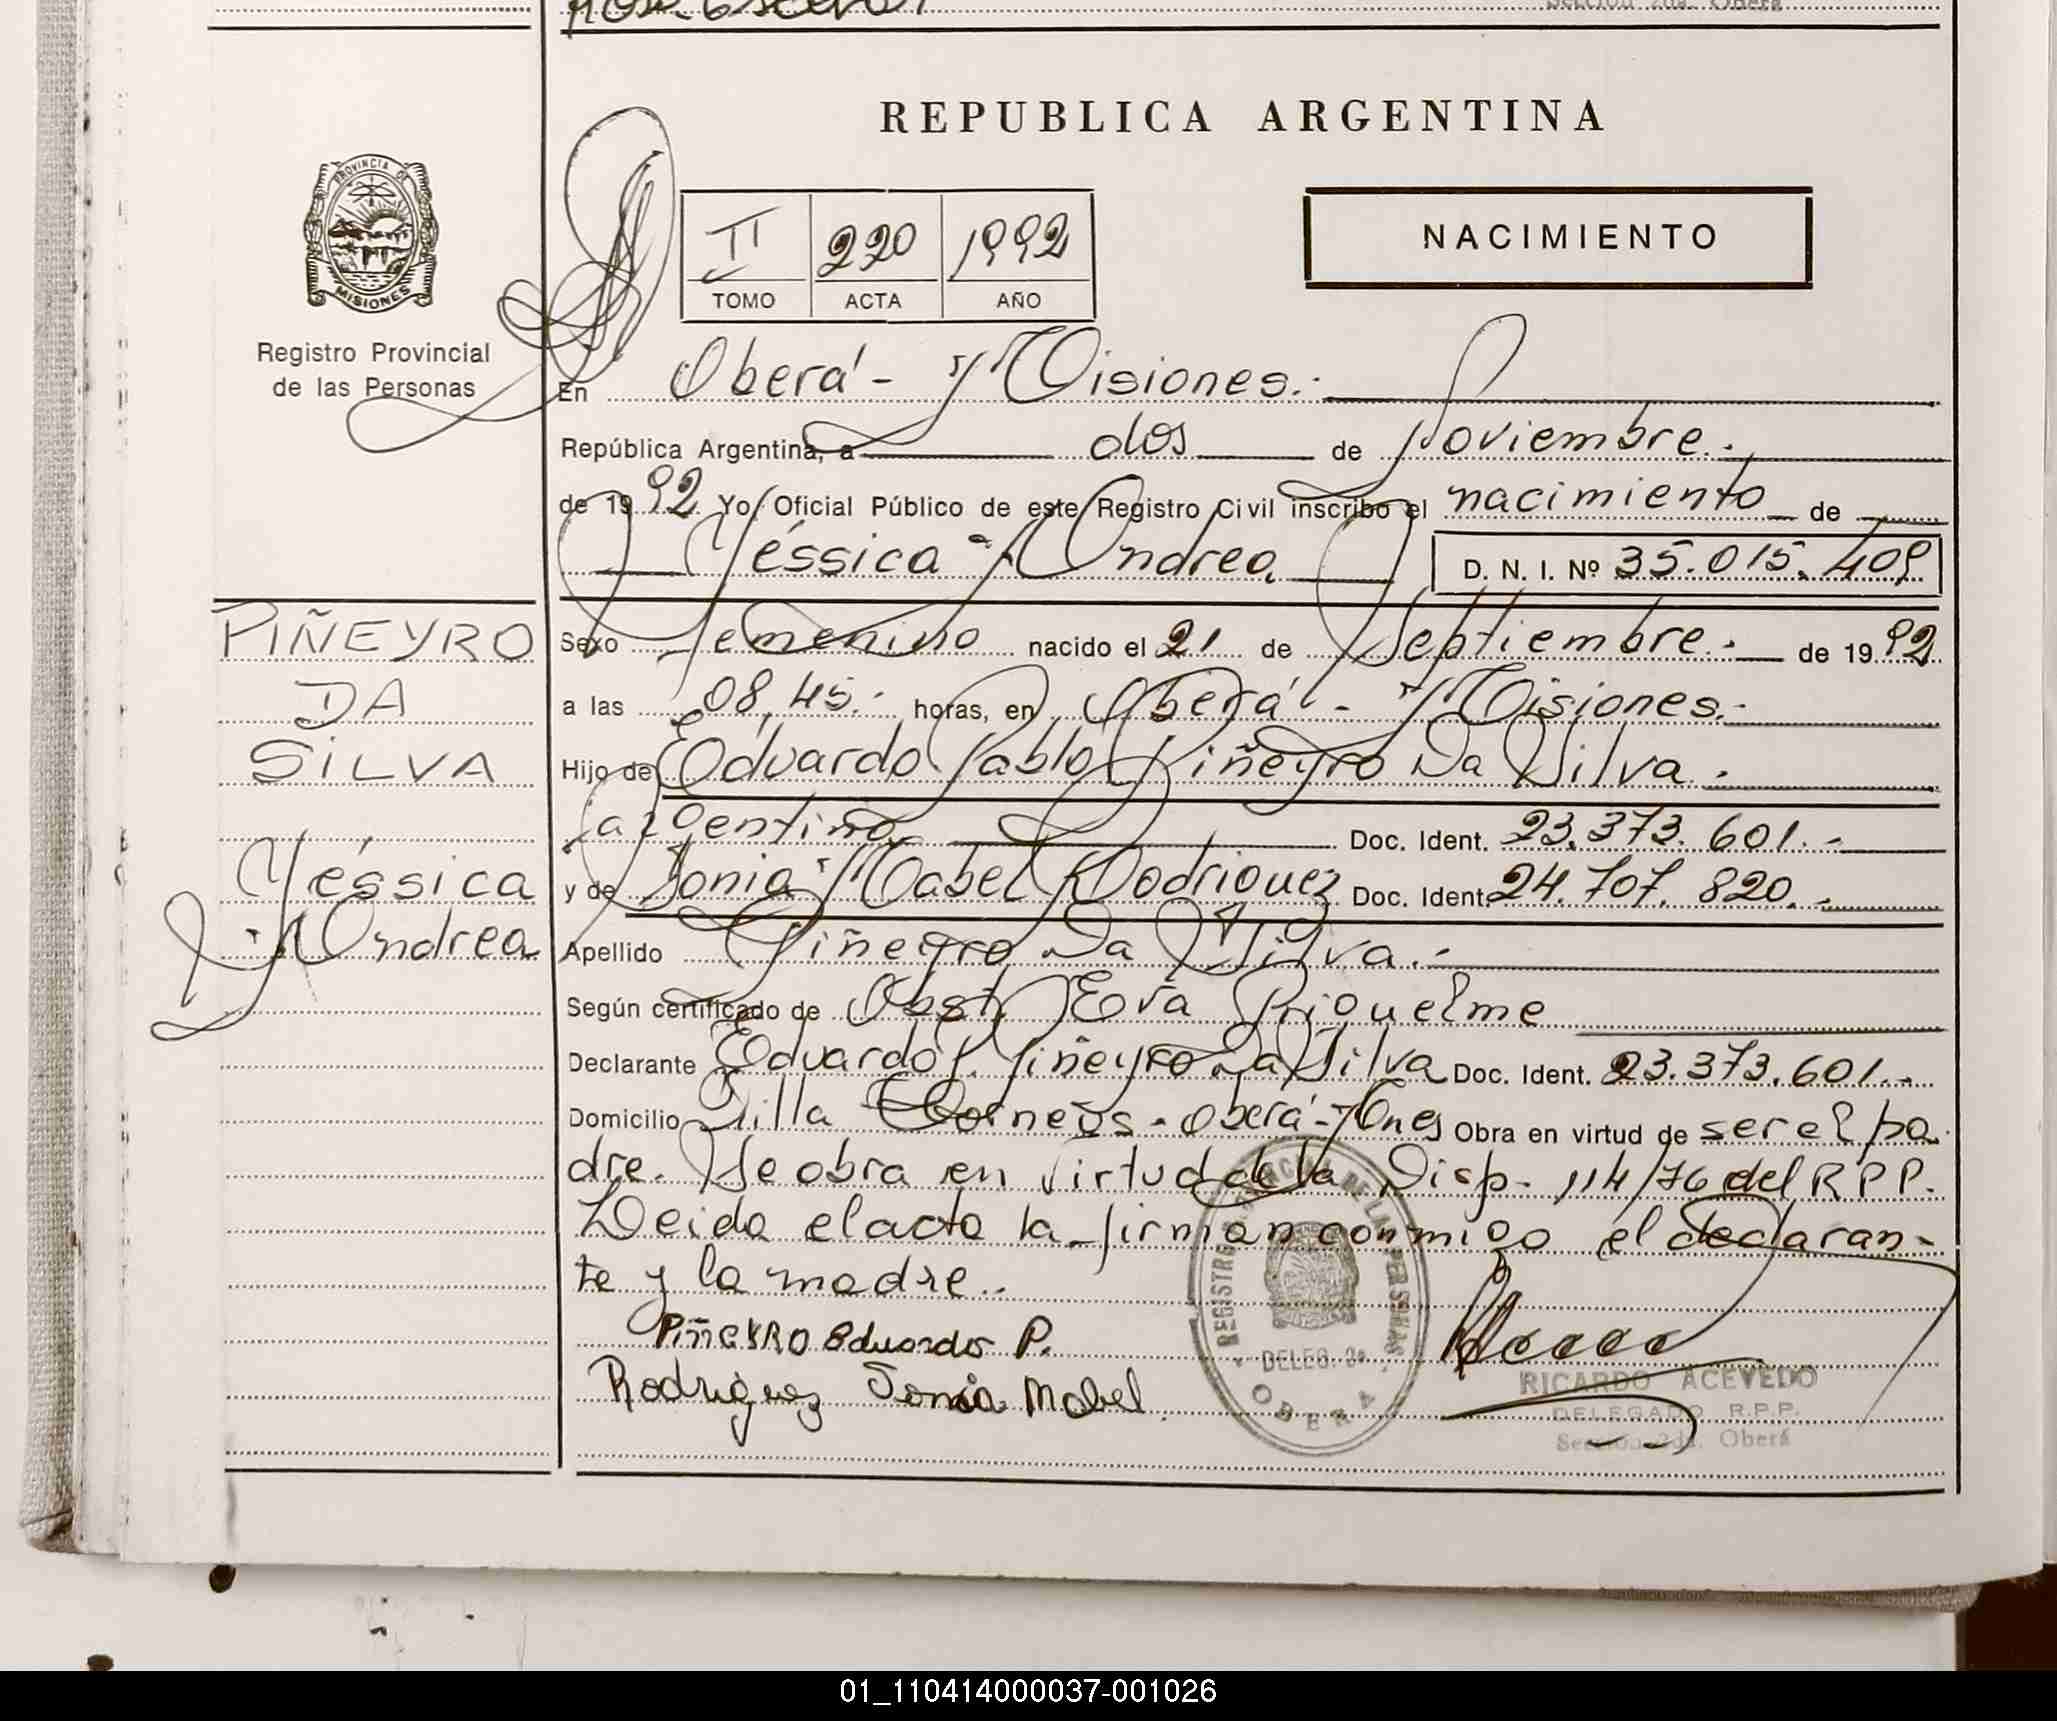 Sección 2da. Oberá
REPUBLICA ARGENTINA
PROVINCIA DE
MISIONES
Registro Provincial
de las Personas
II 220 1992
TOMO ACTA AÑO
NACIMIENTO
En Oberá - Misiones.-
República Argentina, a dos de Noviembre.-
de 1992 Yo, Oficial Público de este Registro Civil inscribo el nacimiento de
Yéssica Andrea D. N. I. Nº 35.015.409
PIÑEYRO
DA
SILVA
Yéssica
Andrea
Sexo Femenino nacido el 21 de Septiembre.- de 1992
a las 08,45.- horas, en Oberá - Misiones.-
Hijo de Eduardo Pablo Piñeyro Da Silva.-
argentino Doc. Ident. 23.373.601.-
y de Sonia Mabel Rodriguez Doc. Ident. 24.707.820.-
Apellido Piñeyro Da Silva.-
Según certificado de Obst. Eva Riquelme
Declarante Eduardo P. Piñeyro Da Silva Doc. Ident. 23.373.601.-
Domicilio Villa - Oberá - Mnes Obra en virtud de ser el pa
dre. Se obra en virtud de la Disp. 114/76 del R P P.
Leida el acta la firman conmigo el declaran-
te y la madre.-
PIÑEYRO Eduardo P.
Rodriguez Sonia Mabel
REGISTRO PROVINCIAL DE LAS PERSONAS
DELEG. 2a
OBERA
RICARDO ACEVEDO
DELEGADO R.P.P.
Sección 2da. Oberá
01_110414000037-001026